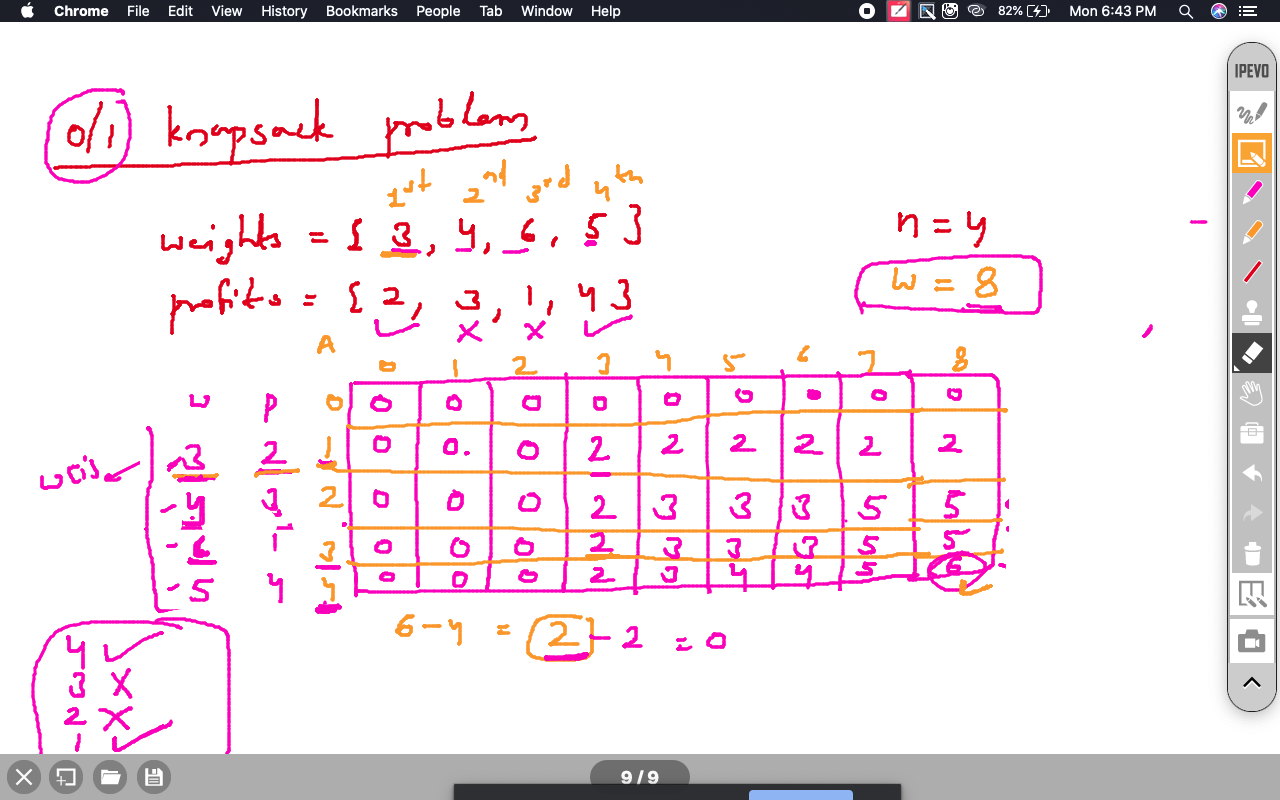 Chrome File Edit View History Bookmarks People Tab Window Help 82% Mon 6:43 PM
IPEVO
0/1 knapsack problem
1st 2nd 3rd 4th
weights = { 3, 4, 6, 5 }
n = 4
profits = { 2, 3, 1, 4 }
W = 8
A 0 1 2 3 4 5 6 7 8
w p 0 0 0 0 0 0 0 0 0 0
3 2 1 0 0 0 2 2 2 2 2 2
4 3 2 0 0 0 2 3 3 3 5 5
6 1 3 0 0 0 2 3 3 3 5 5
5 4 4 0 0 0 2 3 4 4 5 6
6 - 4 = 2 - 2 = 0
4 ✓
3 X
2 X
1 ✓
9 / 9